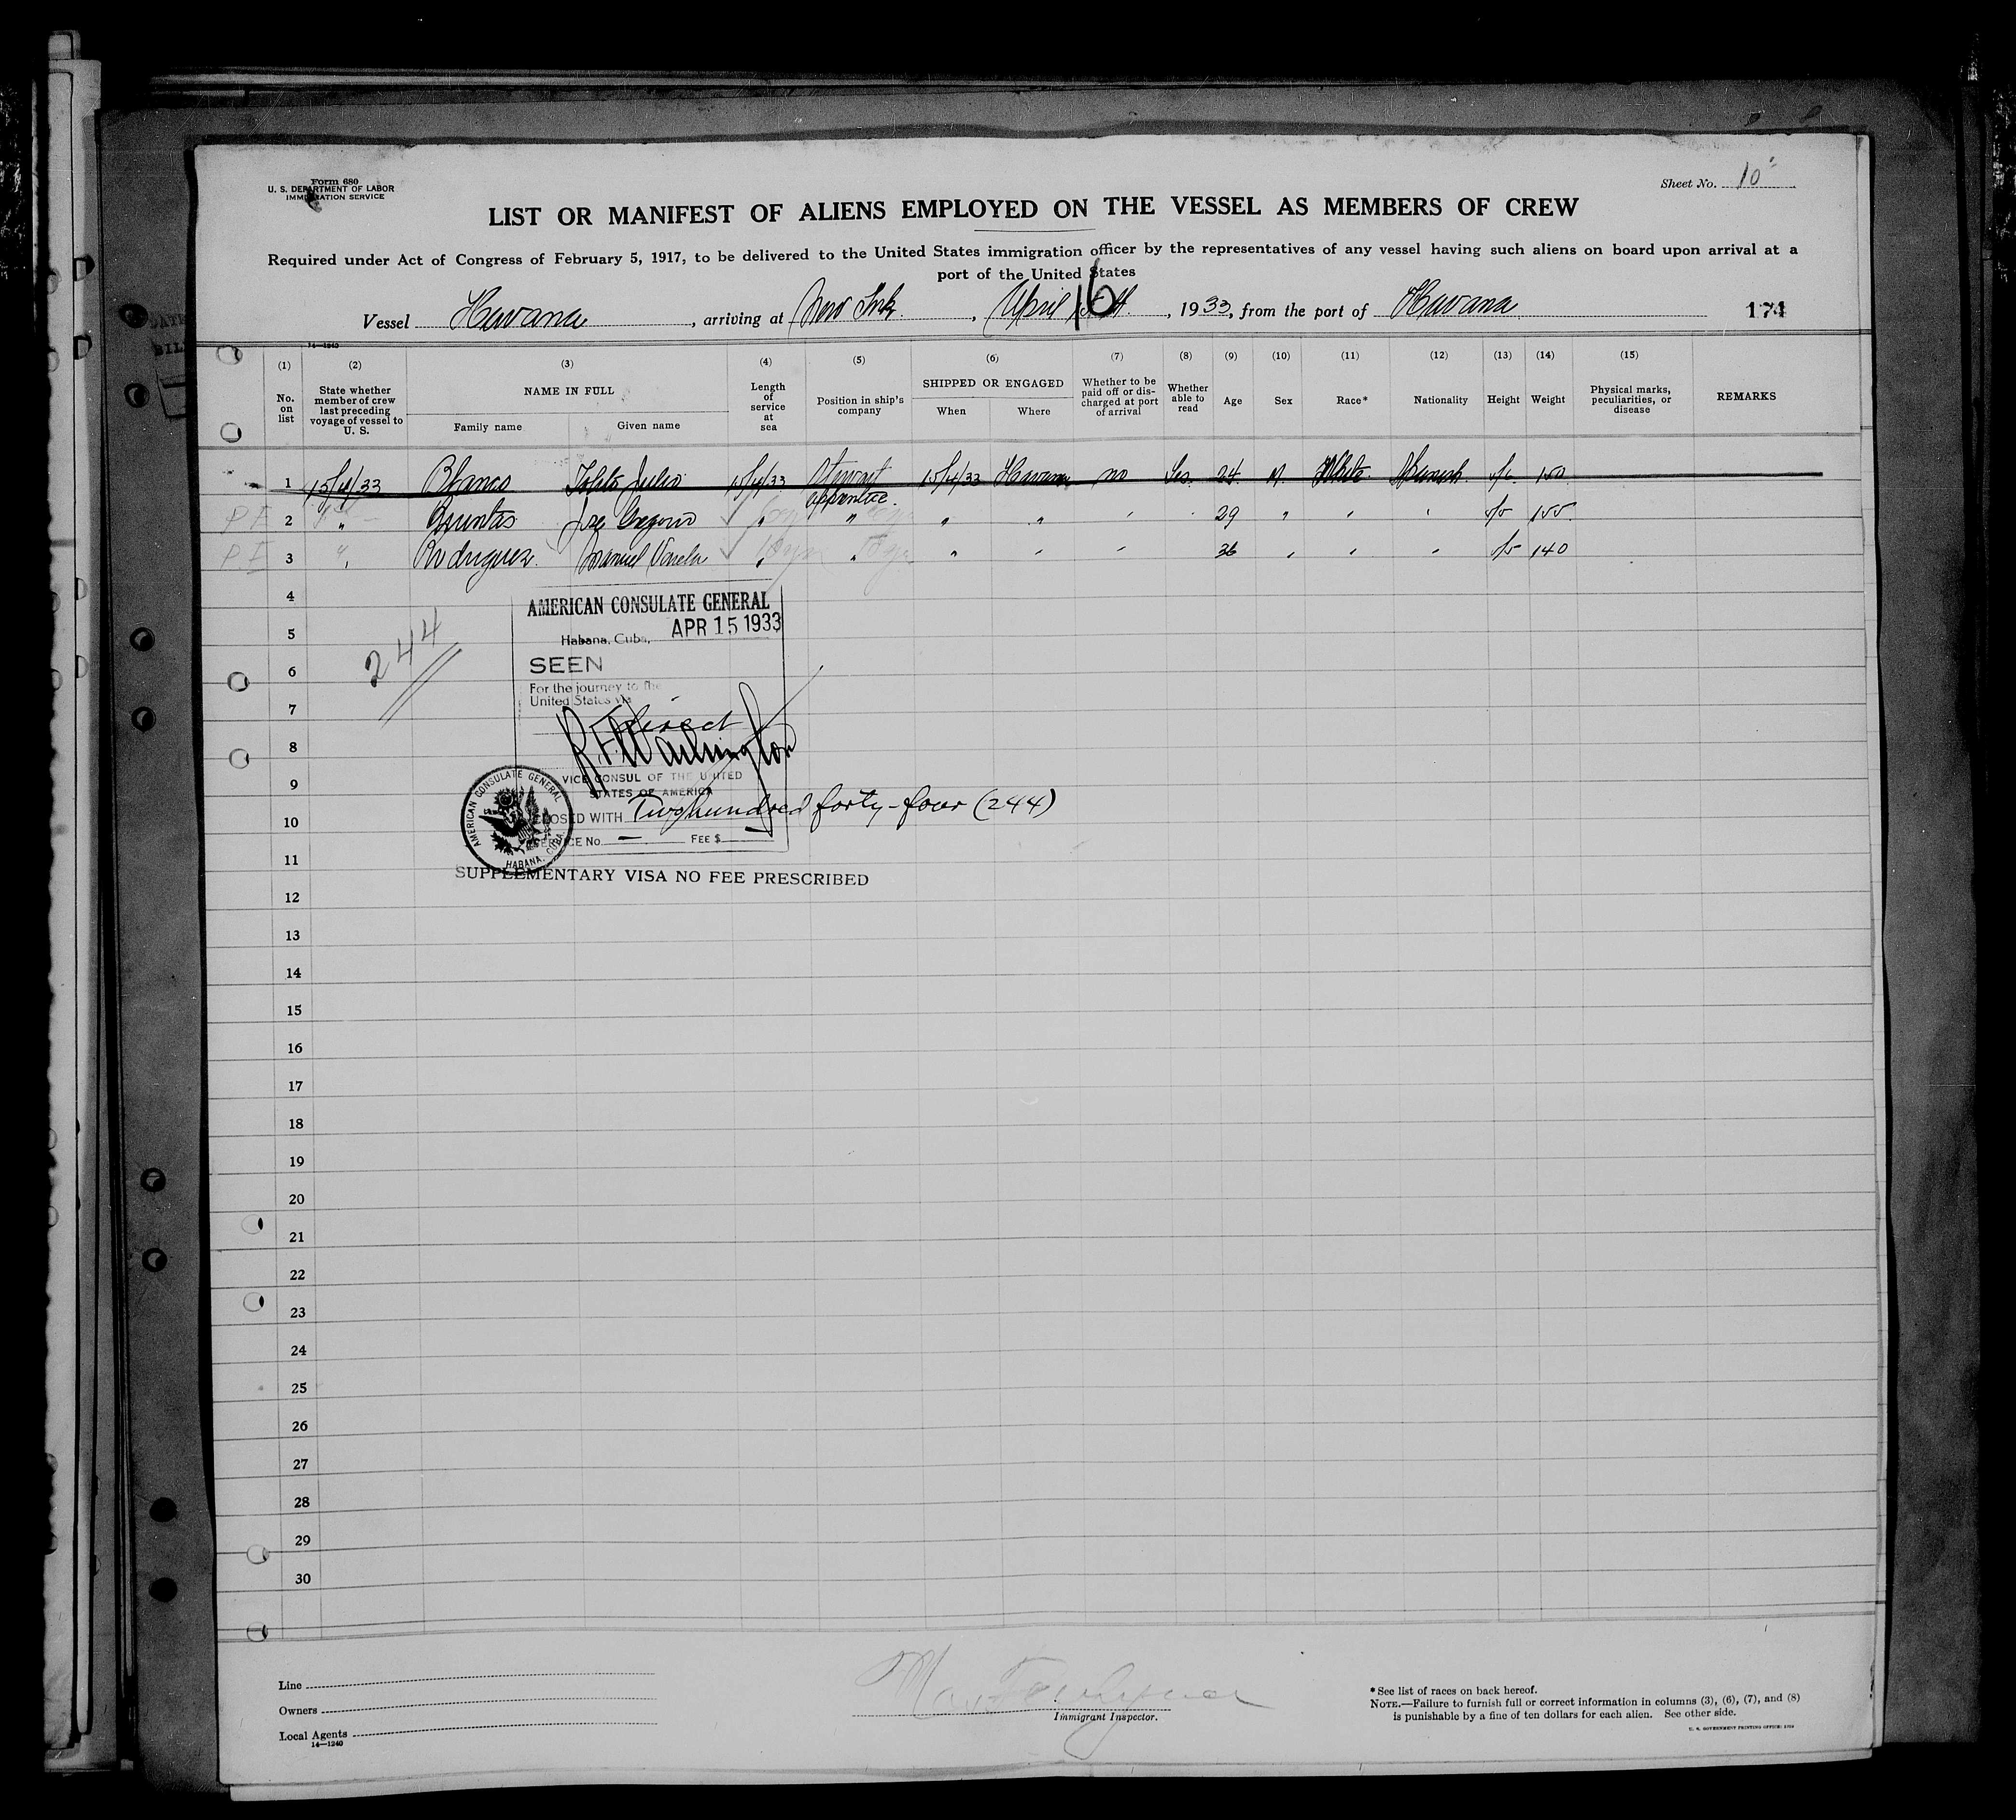 Form 680
U. S. DEPARTMENT OF LABOR
IMMIGRATION SERVICE
Sheet No. 10
LIST OR MANIFEST OF ALIENS EMPLOYED ON THE VESSEL AS MEMBERS OF CREW
Required under Act of Congress of February 5, 1917, to be delivered to the United States immigration officer by the representatives of any vessel having such aliens on board upon arrival at a
port of the United States
Vessel Havana, arriving at New York, April 16, 1933, from the port of Havana 174
14—1240
(1) (2) (3) (4) (5) (6) (7) (8) (9) (10) (11) (12) (13) (14) (15)
No. on list State whether member of crew last preceding voyage of vessel to U. S. NAME IN FULL Family name Given name Length of service at sea Position in ship's company SHIPPED OR ENGAGED When Where Whether to be paid off or discharged at port of arrival Whether able to read Age Sex Race* Nationality Height Weight Physical marks, peculiarities, or disease REMARKS
1 15/4/33 Blanco Julio 15/4/33 15/4/33 Havana no Yes 24 M. White Spanish 5/6 150
apprentice
P I 2 " Jose Gregorio " " " " 29 " " " 5/5 155
P I 3 " Rodriguez Manuel Varela " " " " 36 " " " 5/5 140
4
AMERICAN CONSULATE GENERAL
5
Habana, Cuba, APR 15 1933
244
6
SEEN
For the journey to the
United States via
7
direct
8
VICE CONSUL OF THE UNITED
STATES OF AMERICA
9
10
CLOSED WITH Two hundred forty-four (244)
SERVICE No. — FEE $ —
AMERICAN CONSULATE GENERAL HABANA, CUBA
11
SUPPLEMENTARY VISA NO FEE PRESCRIBED
12
13
14
15
16
17
18
19
20
21
22
23
24
25
26
27
28
29
30
Line
Owners
Local Agents
14—1240
Immigrant Inspector.
* See list of races on back hereof.
NOTE.—Failure to furnish full or correct information in columns (3), (6), (7), and (8)
is punishable by a fine of ten dollars for each alien. See other side.